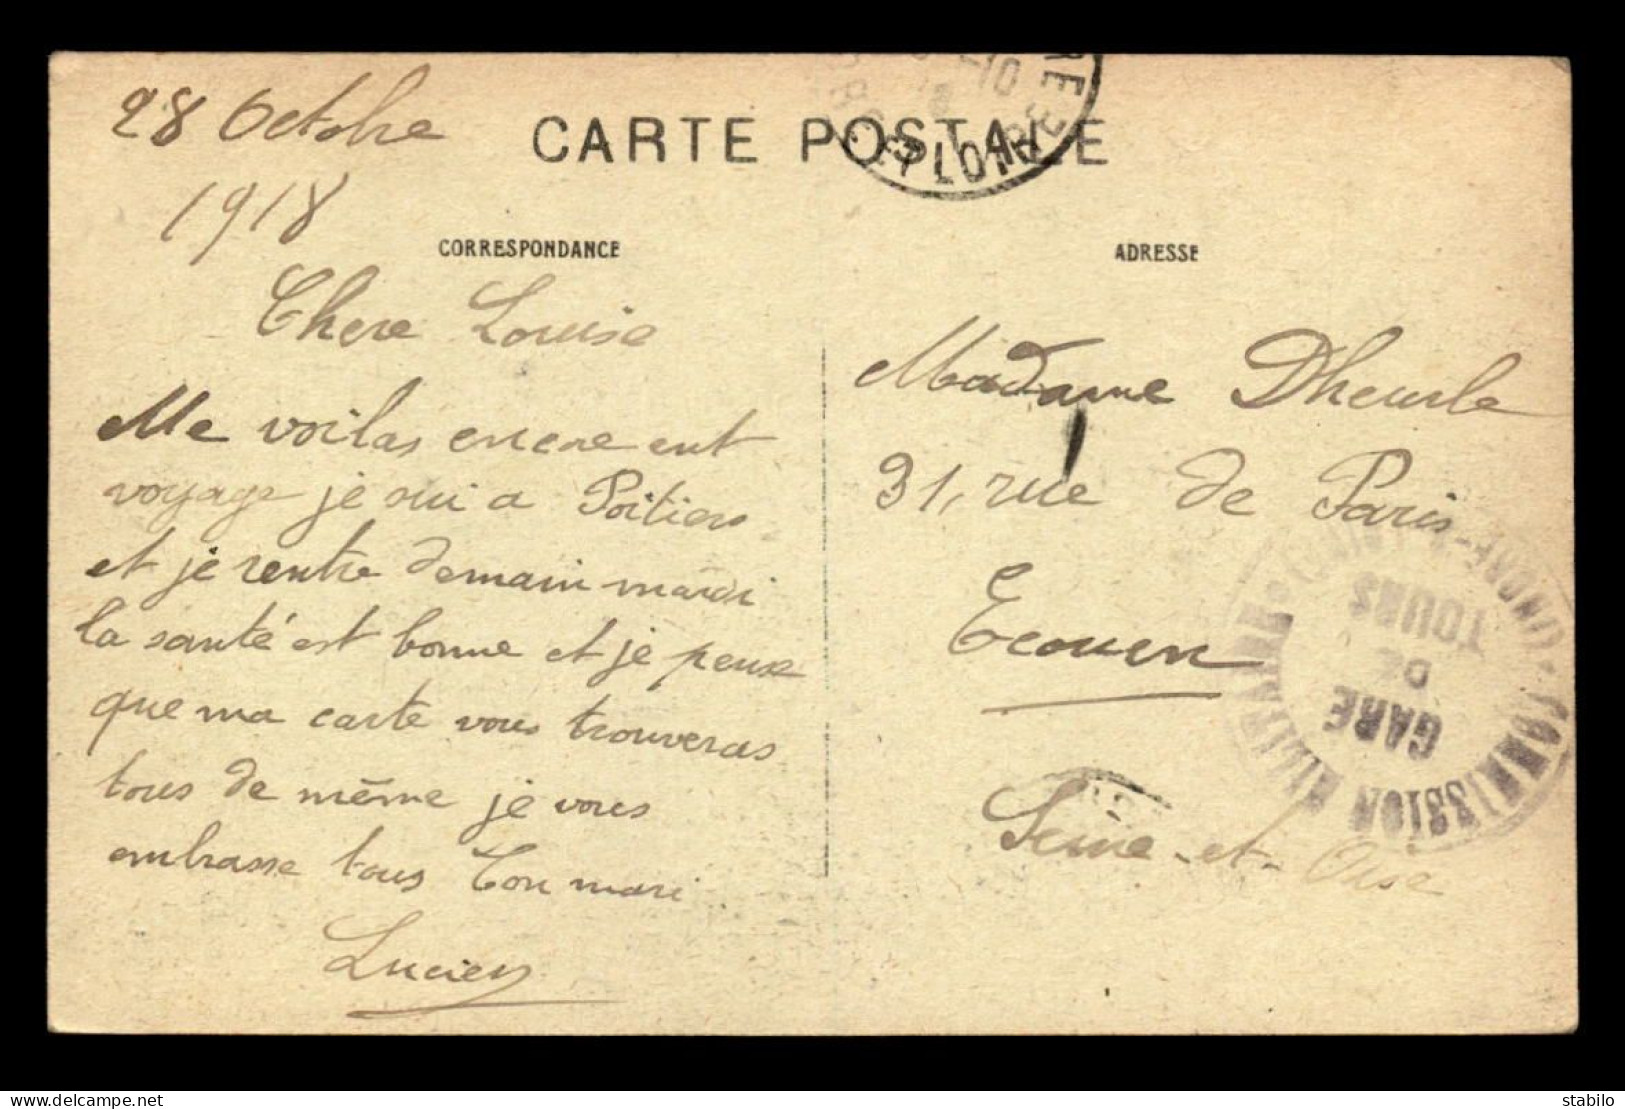 28 Octobre
1918
CARTE POSTALE
CORRESPONDANCE
Chere Louise
Me voilas encore ent
voyage je sui a Poitiers
et je rentre demain mardi
la santé est bonne et je peux
que ma carte vous trouveras
tous de même je vous
embrasse tous Ton mari
Lucien
ADRESSE
Madame Dheurle
31, rue de Paris
Ecouen
Seine-et-Oise
COMMISSION MILITAIRE
GARE
DE
TOURS
delcampe.net
stabilo